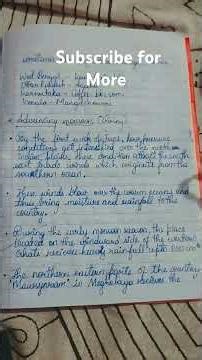 Subscribe for
More
West Bengal -
Uttar Pradesh -
Karnataka - Coffee blossom
Kerala - Mango showers
Advancing monsoon (Rainy)
By the first week of June, low pressure
conditions get intensified over the northern
Indian plains, these condition attract the south
west trade winds which originate from the
southern ocean.
These winds blow over the warm oceans and
thus bring moisture and rainfall to the
country.
During the early monsoon season, the place
located on the windward side of the western
Ghats receives heavy rainfall upto 250 cm
The northern eastern parts of the country
"Mawsynram" in Meghalaya receives the